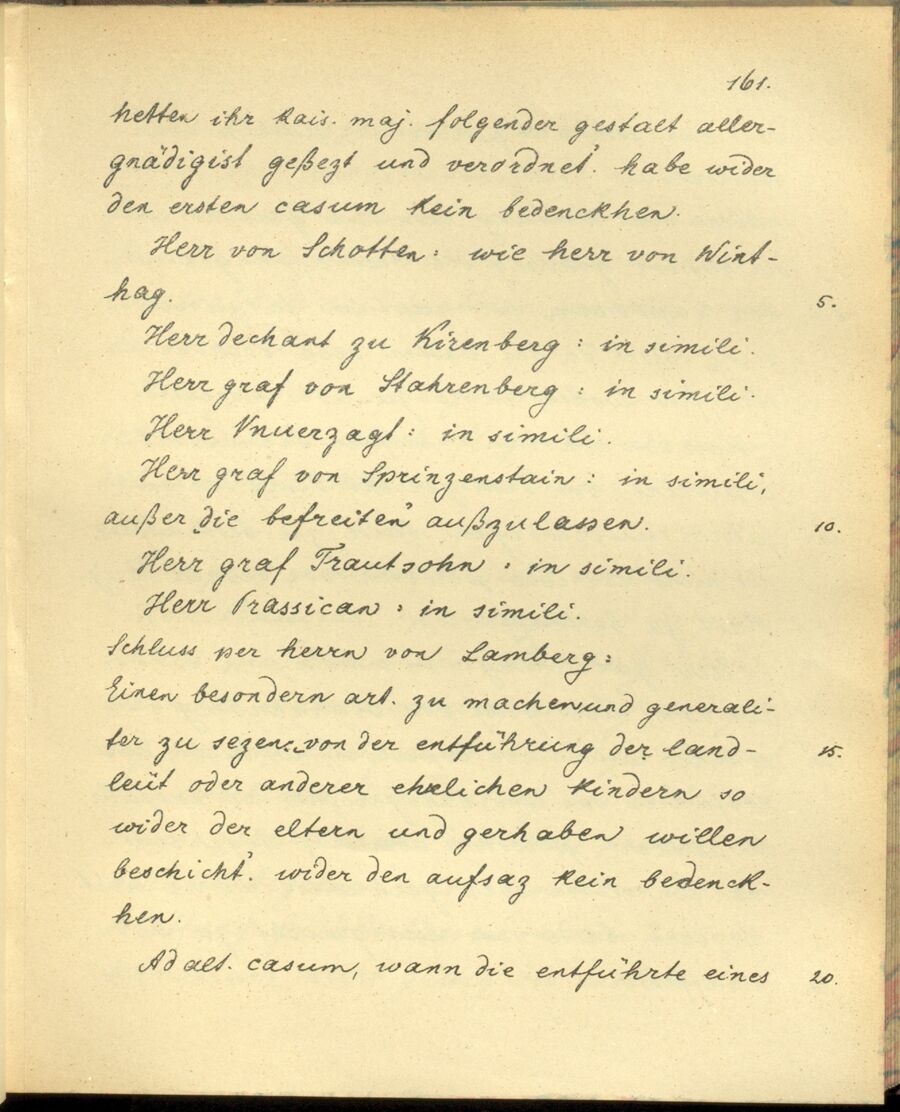 161.
hetten ihr kais. maj. folgender gestalt aller-
gnädigist geßezt und verordnet“. habe wider
den ersten casum kein bedenckhen.
Herr von Schotten: wie herr von Wint-
hag.
5.
Herr dechant zu Kirenberg: in simili.
Herr graf von Stahrenberg: in simili.
Herr Vnuerzagt: in simili.
Herr graf von Sprinzenstain: in simili,
außer „die befreiten“ außzulassen.
10.
Herr graf Trautsohn: in simili.
Herr Prassican: in simili.
Schluss per herrn von Lamberg:
Einen besondern art. zu machen und generali-
ter zu sezen: „von der entführung der land-
15.
leüt oder anderer ehelichen kindern so
wider der eltern und gerhaben willen
beschicht“. wider den aufsaz kein bedenck-
hen.
Ad alt. casum, wann die entführte eines
20.